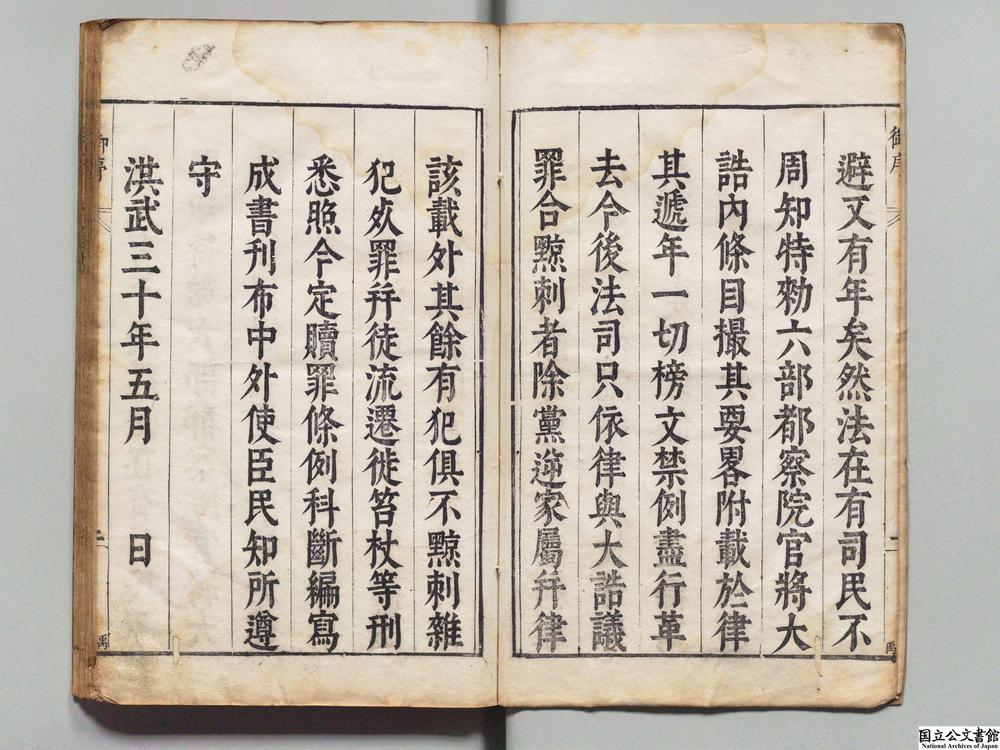 御序
避又有年矣然法在有司民不
周知特勑六部都察院官將大
誥內條目撮其要畧附載於律
其遞年一切榜文禁例盡行革
去今後法司只依律與大誥議
罪合黥刺者除黨逆家屬幷律
二
禹
該載外其餘有犯俱不黥刺雜
犯处罪幷徒流遷徙笞杖等刑
悉照今定贖罪條例科斷編寫
成書刊布中外使臣民知所遵
守
洪武三十年五月 日
御序
二
禹
国立公文書館
National Archives of Japan